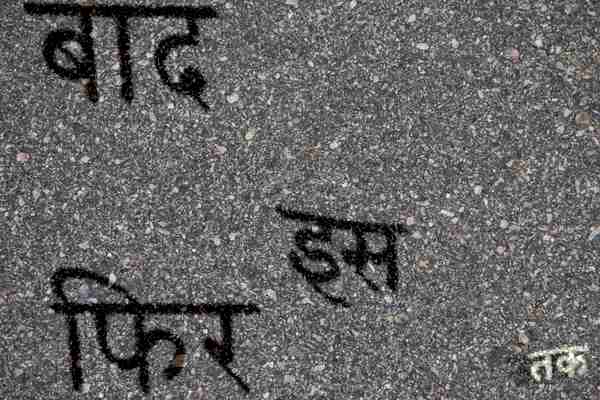 बाद
इस
फिर
तक